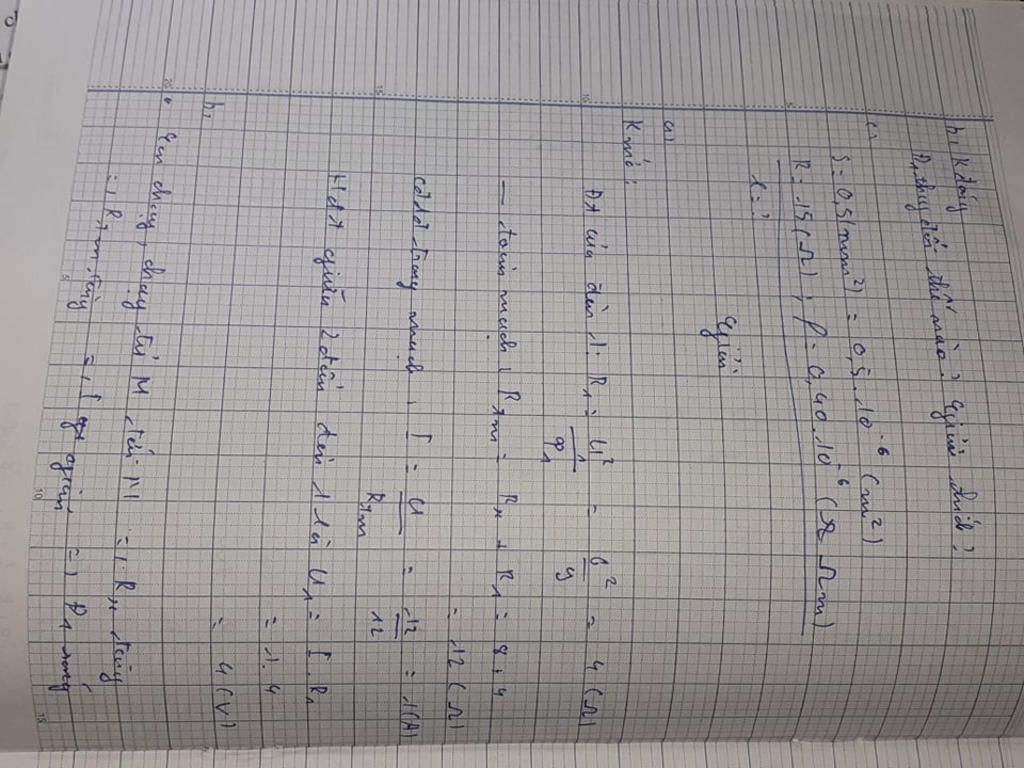 b, K đóng
Đ1 thay đổi thế nào? Giải thích?
c,
S = 0,5 (mm²) = 0,5.10⁻⁶ (m²)
R = 15 (Ω) ; ρ = 0,40.10⁻⁶ (Ωm)
l = ?
Giải
a,
K mở:
ĐT của đèn 1: R₁ = U₁²/P₁ = 6²/9 = 4 (Ω)
— toàn mạch: Rtm = Rx + R₁ = 8 + 4
= 12 (Ω)
CĐDĐ trong mạch: I = U/Rtm = 12/12 = 1 (A)
HĐT giữa 2 đầu đèn 1 là U₁ = I.R₁
= 1.4
= 4 (V)
b,
• chạy từ M tới N => Rx tăng
=> Rtm tăng => I giảm => Đ1 sáng